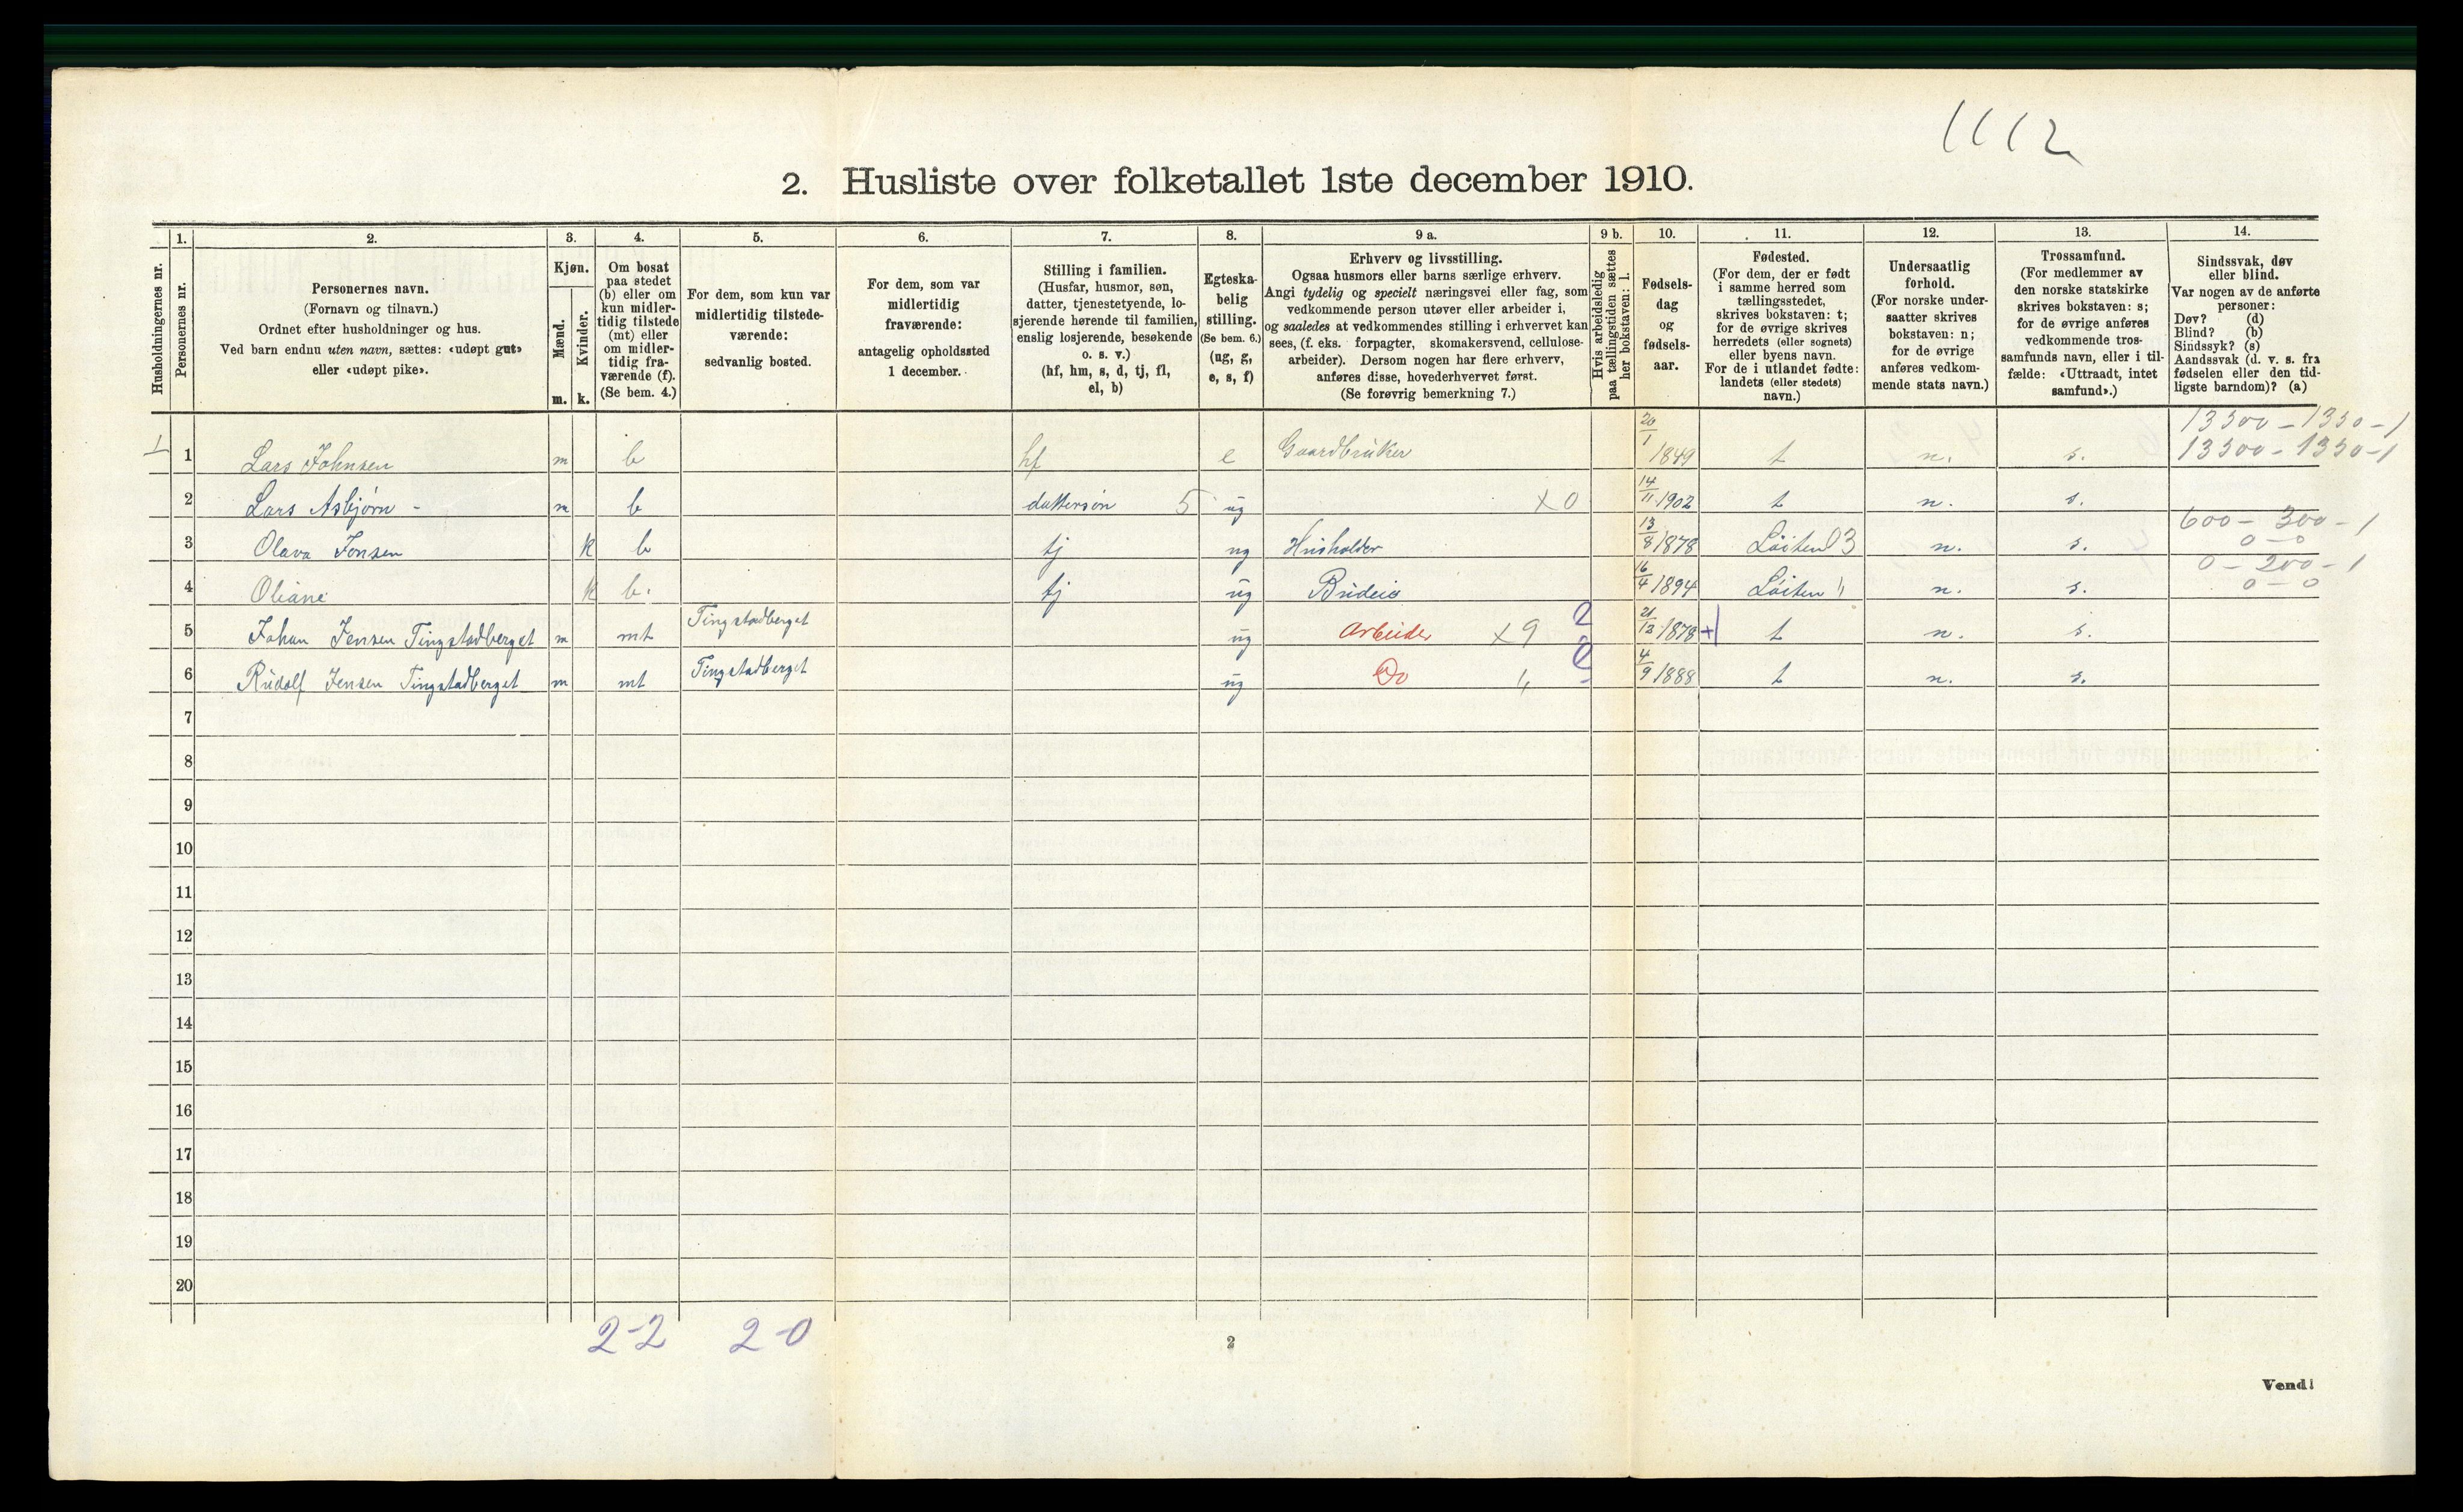 1112
2. Husliste over folketallet 1ste december 1910.
Husholdningernes nr.
1.
Personernes nr.
2.
Personernes navn.
(Fornavn og tilnavn.)
Ordnet efter husholdninger og hus.
Ved barn endnu uten navn, sættes: «udøpt gut»
eller «udøpt pike».
3.
Kjøn.
Mænd.
Kvinder.
m. k.
4.
Om bosat
paa stedet
(b) eller om
kun midler-
tidig tilstede
(mt) eller
om midler-
tidig fra-
værende (f).
(Se bem. 4.)
5.
For dem, som kun var
midlertidig tilstede-
værende:
sedvanlig bosted.
6.
For dem, som var
midlertidig
fraværende:
antagelig opholdssted
1 december.
7.
Stilling i familien.
(Husfar, husmor, søn,
datter, tjenestetyende, lo-
sjerende hørende til familien,
enslig losjerende, besøkende
o. s. v.)
(hf, hm, s, d, tj, fl,
el, b)
8.
Egteska-
belig
stilling.
(Se bem. 6.)
(ug, g,
e, s, f)
9 a.
Erhverv og livsstilling.
Ogsaa husmors eller barns særlige erhverv.
Angi tydelig og specielt næringsvei eller fag, som
vedkommende person utøver eller arbeider i,
og saaledes at vedkommendes stilling i erhvervet kan
sees, (f. eks. forpagter, skomakersvend, cellulose-
arbeider). Dersom nogen har flere erhverv,
anføres disse, hovederhvervet først.
(Se forøvrig bemerkning 7.)
9 b.
Hvis arbeidsledig
paa tællingstiden sættes
her bokstaven: l.
10.
Fødsels-
dag
og
fødsels-
aar.
11.
Fødested.
(For dem, der er født
i samme herred som
tællingsstedet,
skrives bokstaven: t;
for de øvrige skrives
herredets (eller sognets)
eller byens navn.
For de i utlandet fødte:
landets (eller stedets)
navn.)
12.
Undersaatlig
forhold.
(For norske under-
saatter skrives
bokstaven: n;
for de øvrige
anføres vedkom-
mende stats navn.)
13.
Trossamfund.
(For medlemmer av
den norske statskirke
skrives bokstaven: s;
for de øvrige anføres
vedkommende tros-
samfunds navn, eller i til-
fælde: «Uttraadt, intet
samfund».)
14.
Sindssvak, døv
eller blind.
Var nogen av de anførte
personer:
Døv? (d)
Blind? (b)
Sindssyk? (s)
Aandssvak (d. v. s. fra
fødselen eller den tid-
ligste barndom)? (a)
13500 - 1350 - 1
1 1 Lars Johnsen m b hf e Gaardbruker 20/1 1849 t n. s. 13500 - 1350 - 1
2 Lars Asbjørn - m b dattersøn 5 ug x0 14/11 1902 t n. s.
600 - 300 - 1
3 Olava Jensen k b tj ug Husholder 13/8 1878 Løiten 03 n. s. 0 - 0
0 - 200 - 1
4 Oliane k b. tj ug Budeie 16/4 1894 Løiten n. s. 0 - 0
5 Johan Jensen Tingstadberget m mt Tingstadberget ug Arbeider x9 21/12 1878 t n. s.
6 Rudolf Jensen Tingstadberget m mt Tingstadberget ug Do 4/9 1888 t n. s.
7
8
9
10
11
12
13
14
15
16
17
18
19
20
2-2 2-0
2
Vend!